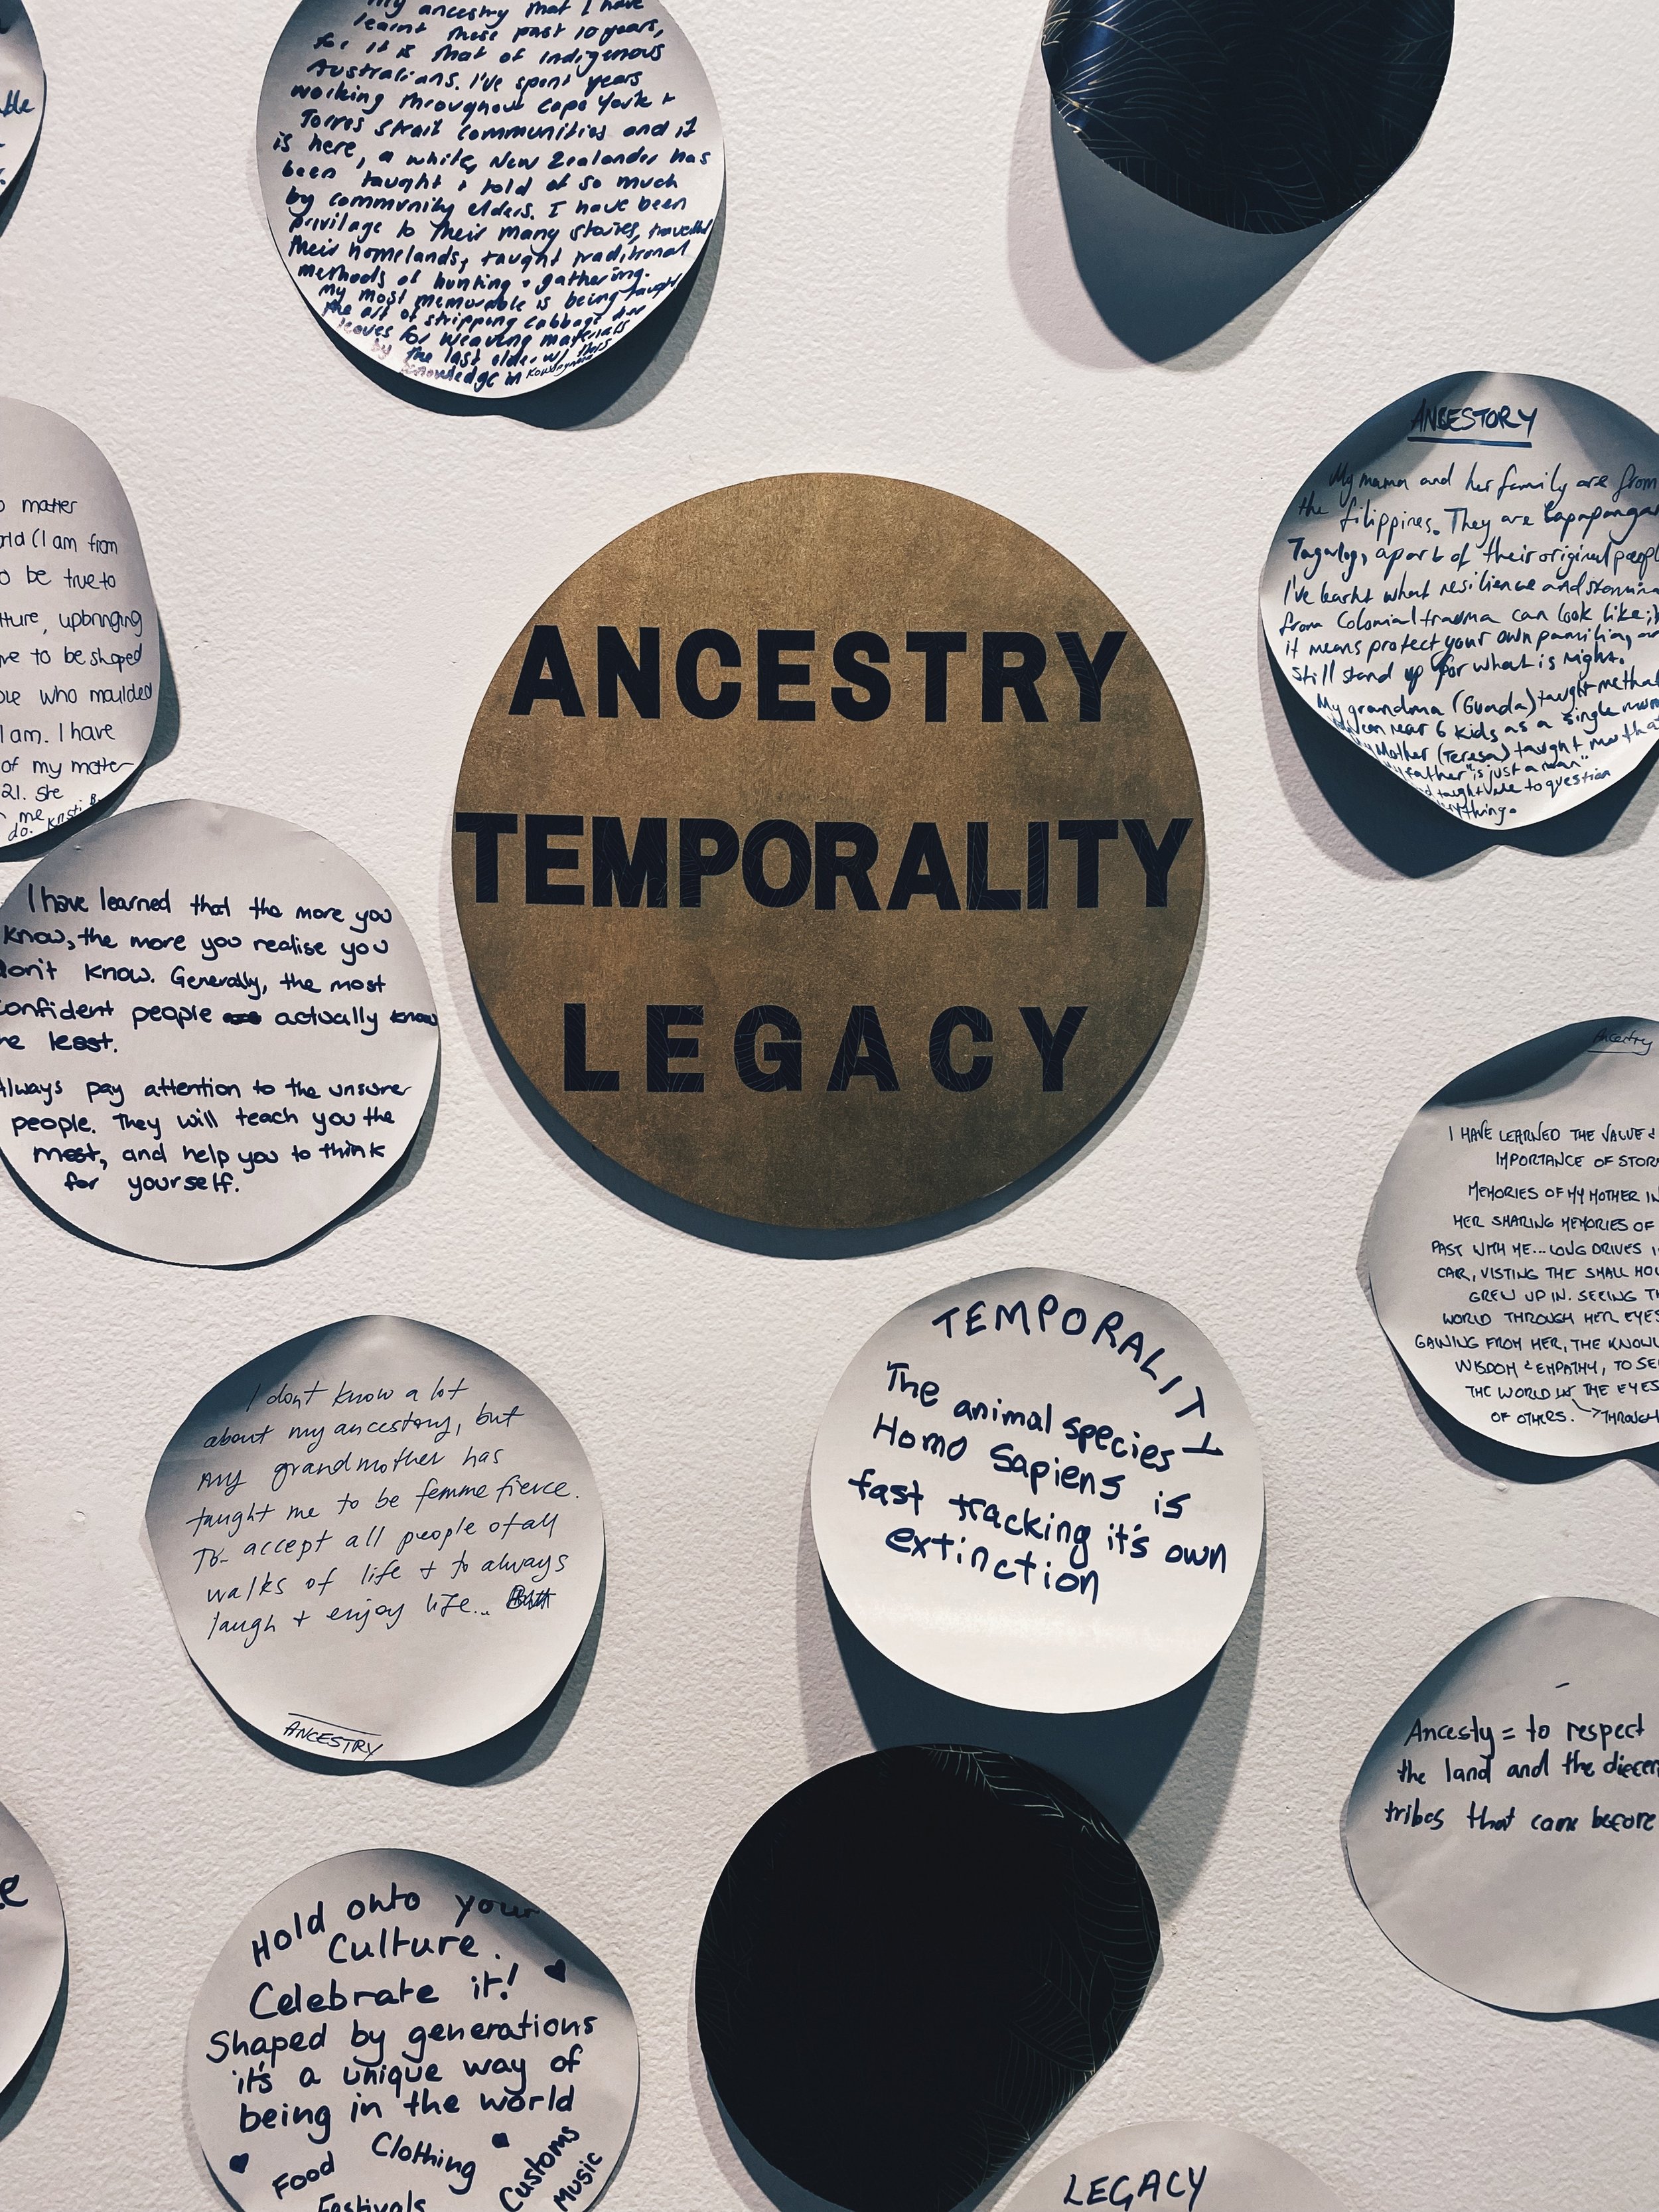 My ancestry that I have
learnt these past 10 years,
for it is that of indigenous
Australians. I've spent years
working throughout Cape York +
Torres strait communities and it
is here, a white, New Zealander has
been taught + told of so much
by community elders. I have been
privilage to their many stories, travelled
their homelands, taught traditional
methods of hunting + gathering.
My most memorable is being taught
the art of stripping cabbage tree
leaves for weaving materials
by the last elder w/ this
knowledge in
ANCESTORY
My mama and her family are from
the filippines. They are
Tagalog, a part of their original
I've learnt what resilience and
from Colonial trauma can look like;
it means protect your own
still stand up for what is right.
My grandma (Guada) taught me that
rear 6 kids as a single mum
My Mother (Teresa) taught me that
my father "is just a man"
taught me to question
o matter
rld (I am from
o be true to
lture, upbringing
re to be shaped
ple who moulded
I am. I have
of my mater
21. She
me
do. Kristi B
ANCESTRY
TEMPORALITY
LEGACY
I have learned that the more you
know, the more you realise you
don't know. Generally, the most
confident people actually know
he least.
Always pay attention to the unsurer
people. They will teach you the
most, and help you to think
for yourself.
Ancestry
I HAVE LEARNED THE VALUE &
IMPORTANCE OF STOR
MEMORIES OF MY MOTHER IN
HER SHARING MEMORIES OF
PAST WITH ME... LONG DRIVES I
CAR, VISTING THE SMALL HOU
GREW UP IN. SEEING TH
WORLD THROUGH HER EYES
GAINING FROM HER, THE KNOWL
WISDOM & EMPATHY, TO SE
THE WORLD THE EYES
OF OTHERS. THROUGH
I dont know a lot
about my ancestory, but
my grandmother has
taught me to be femme fierce.
To accept all people of all
walks of life + to always
laugh + enjoy life...
ANCESTRY
TEMPORALITY
The animal species
Homo Sapiens is
fast tracking it's own
extinction
Ancesty = to respect
the land and the
tribes that came before
Hold onto your
Culture.
Celebrate it!
Shaped by generations
it's a unique way of
being in the world
Food Clothing Customs
Festivals Music
LEGACY